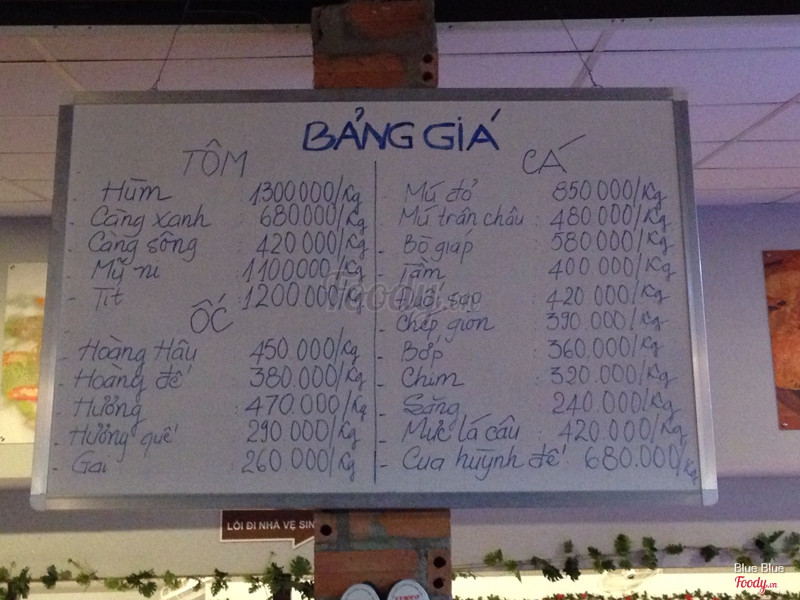 BẢNG GIÁ
TÔM
- Hùm 1300000/Kg
- Càng xanh 680000/Kg
- Càng sông 420000/Kg
- Mỹ ni : 1100000/Kg
- Tít : 1200000/Kg
ỐC
- Hoàng Hậu 450.000/Kg
- Hoàng đế 380.000/Kg
- Hương : 470.000/Kg
- Hương quế 290.000/Kg
- Gai 260 000/Kg
CÁ
- Mú đỏ 850.000/Kg
- Mú trân châu : 480.000/Kg
- Bò giáp : 580000/Kg
- Tầm 400 000/Kg
- sao : 420 000/Kg
- Chép giòn 390.000/Kg
- Bớp : 360.000/Kg
- Chim : 320.000/Kg
- Săng 240.000/Kg
- Mực lá câu : 420.000/Kg
- Cua huỳnh đế : 680.000/Kg
Foody.vn
LỐI ĐI NHÀ VỆ SIN
Blue Blue
Foody.vn